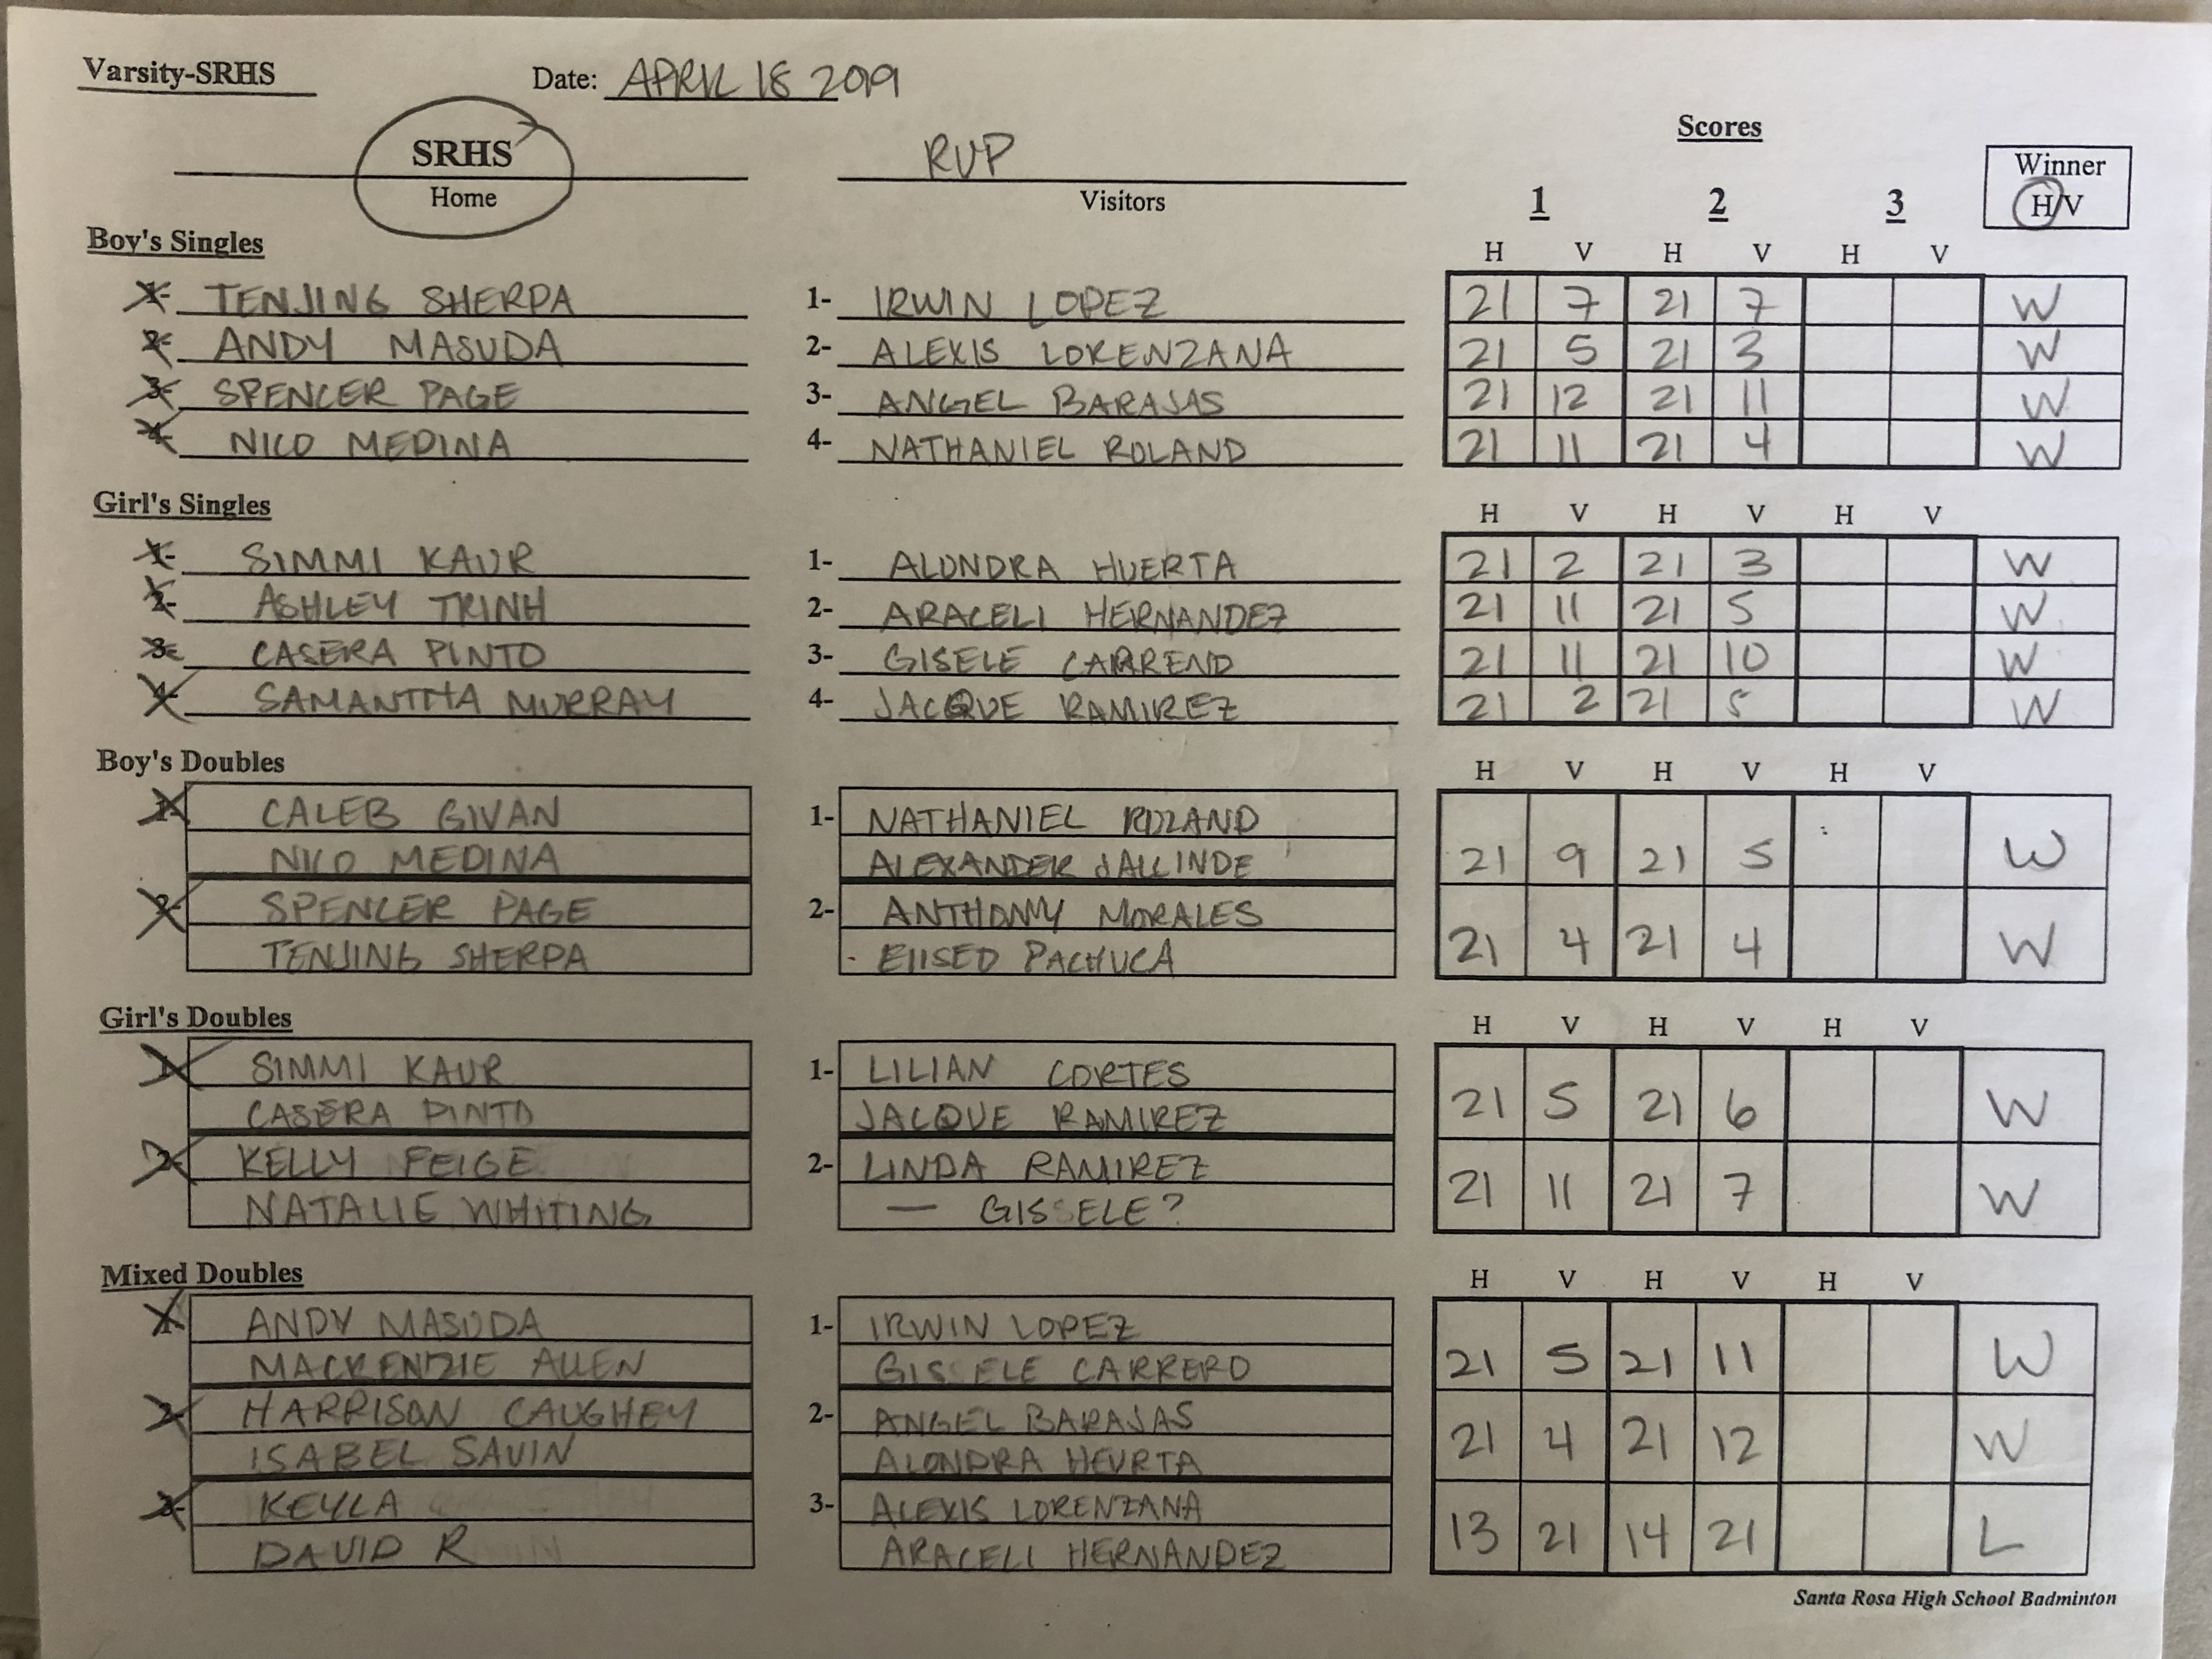 Varsity-SRHS Date: APRIL 18 2019
Scores
SRHS RVP Winner
Home Visitors 1 2 3 H/V
Boy's Singles H V H V H V
1- TENJING SHERPA 1- IRWIN LOPEZ 21 7 21 7 W
2- ANDY MASUDA 2- ALEXIS LORENZANA 21 5 21 3 W
3- SPENCER PAGE 3- ANGEL BARAJAS 21 12 21 11 W
4- NICO MEDINA 4- NATHANIEL ROLAND 21 11 21 4 W
Girl's Singles H V H V H V
1- SIMMI KAUR 1- ALONDRA HUERTA 21 2 21 3 W
2- ASHLEY TRINH 2- ARACELI HERNANDEZ 21 11 21 5 W
3- CASERA PINTO 3- GISELE 21 11 21 10 W
4- SAMANTHA MURRAY 4- JACQUE RAMIREZ 21 2 21 5 W
Boy's Doubles H V H V H V
1- CALEB GIVAN 1- NATHANIEL ROLAND
NICO MEDINA ALEXANDER 21 9 21 5 W
2- SPENCER PAGE 2- ANTHONY MORALES
TENJING SHERPA PACHUCA 21 4 21 4 W
Girl's Doubles H V H V H V
1- SIMMI KAUR 1- LILIAN CORTES
CASERA PINTO JACQUE RAMIREZ 21 5 21 6 W
2- KELLY FEIGE 2- LINDA RAMIREZ
NATALIE WHITING — GISSELE? 21 11 21 7 W
Mixed Doubles H V H V H V
1- ANDY MASUDA 1- IRWIN LOPEZ
MACKENZIE ALLEN GISSELE CARRERO 21 5 21 11 W
2- HARRISON CAUGHEY 2- ANGEL BARAJAS
ISABEL SAVIN ALONDRA HEURTA 21 4 21 12 W
3- KEYLA 3- ALEXIS LORENZANA
DAVID R ARACELI HERNANDEZ 13 21 14 21 L
Santa Rosa High School Badminton